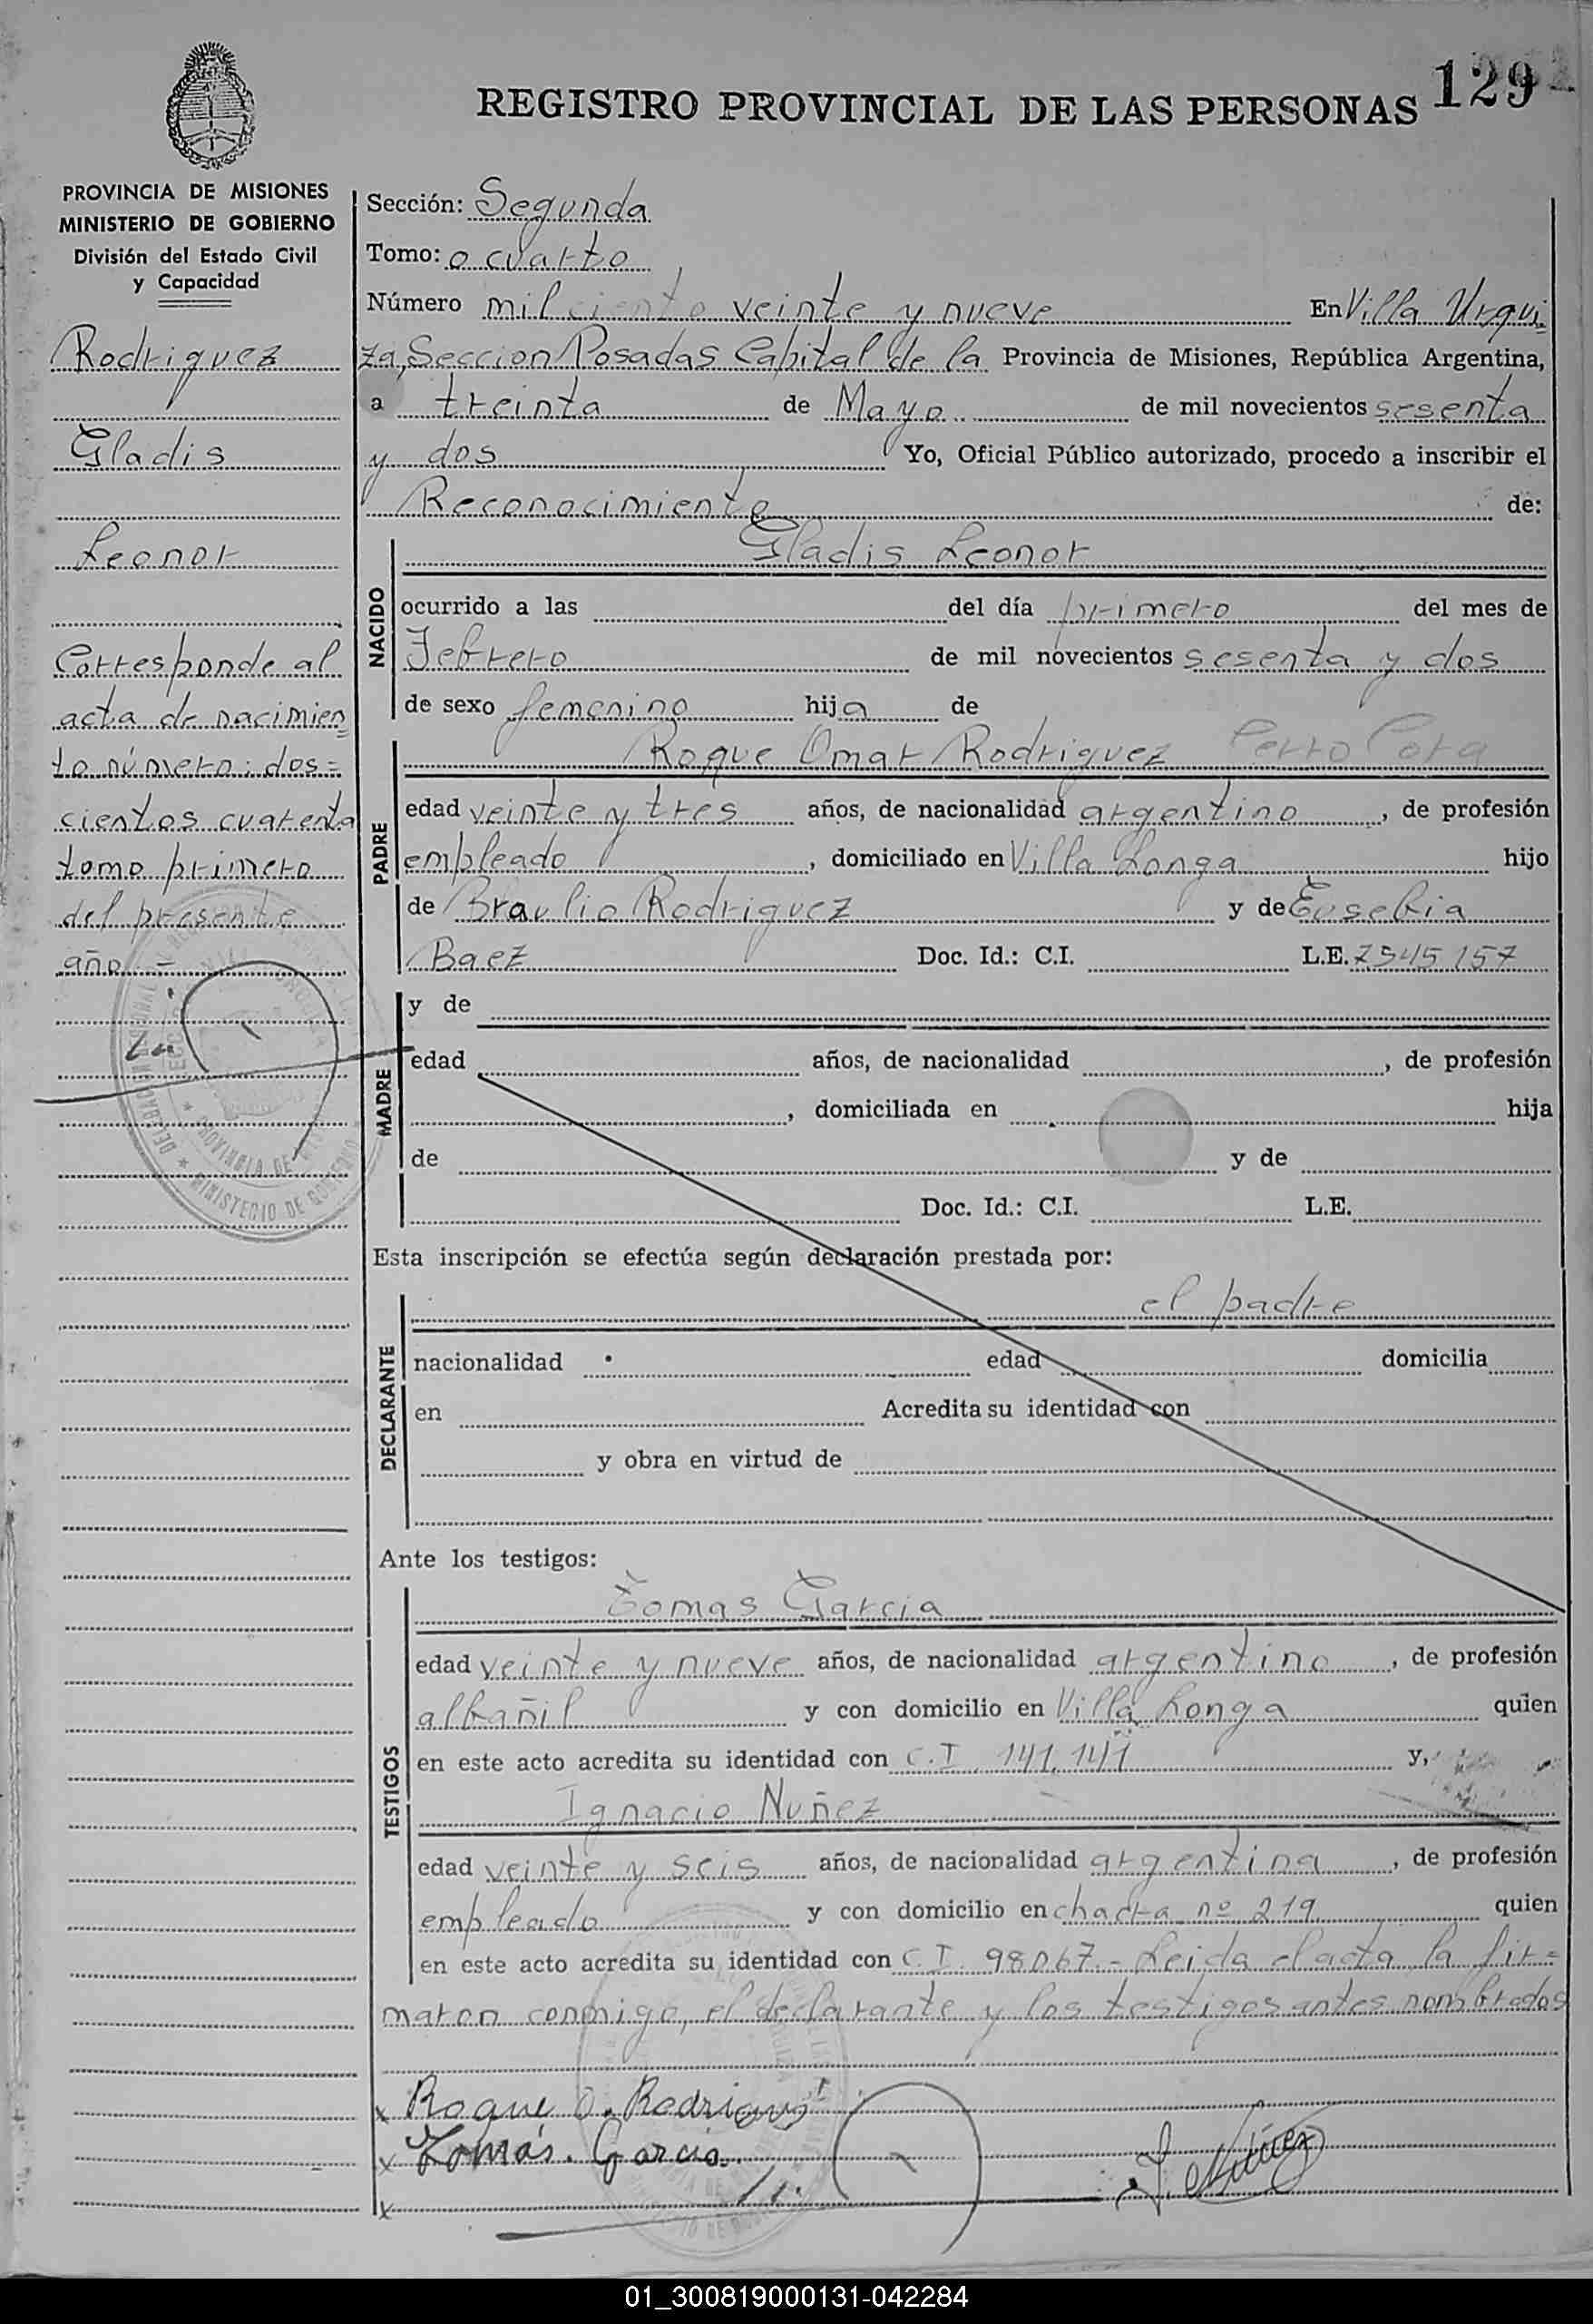 129
REGISTRO PROVINCIAL DE LAS PERSONAS
PROVINCIA DE MISIONES
MINISTERIO DE GOBIERNO
División del Estado Civil
y Capacidad
Rodriguez
Gladis
Leonor
Corresponde al
acta de nacimien
to número: dos=
cientos cuarenta
tomo primero
del presente
año.-
Sección: Segunda
Tomo: o cuarto
Número mil ciento veinte y nueve En Villa Urqui
za, Seccion Posadas Capital de la Provincia de Misiones, República Argentina,
a treinta de Mayo de mil novecientos sesenta
y dos Yo, Oficial Público autorizado, procedo a inscribir el
Reconocimiento de:
NACIDO
Gladis Leonor
ocurrido a las del día primero del mes de
Febrero de mil novecientos sesenta y dos
de sexo femenino hija de
PADRE
Roque Omar Rodriguez
edad veinte y tres años, de nacionalidad argentino, de profesión
empleado, domiciliado en Villa Longa hijo
de Braulio Rodriguez y de Eusebia
Baez Doc. Id.: C.I. L.E. 7545157
MADRE
y de
edad años, de nacionalidad , de profesión
, domiciliada en hija
de y de
Doc. Id.: C.I. L.E.
Esta inscripción se efectúa según declaración prestada por:
DECLARANTE
el padre
nacionalidad edad domicilia
en Acredita su identidad con
y obra en virtud de
Ante los testigos:
TESTIGOS
Tomas Garcia
edad veinte y nueve años, de nacionalidad argentino, de profesión
albañil y con domicilio en Villa Longa quien
en este acto acredita su identidad con C.I. 141.141 y,
Ignacio Nuñez
edad veinte y seis años, de nacionalidad argentina, de profesión
empleado y con domicilio en chacra nº 219 quien
en este acto acredita su identidad con C.I. 98067.- Leida el acta la fir=
maron conmigo, el declarante y los testigos antes nombrados
x Roque O. Rodriguez
x Tomás. Garcia.
x
I. Nuñez
01_300819000131-042284